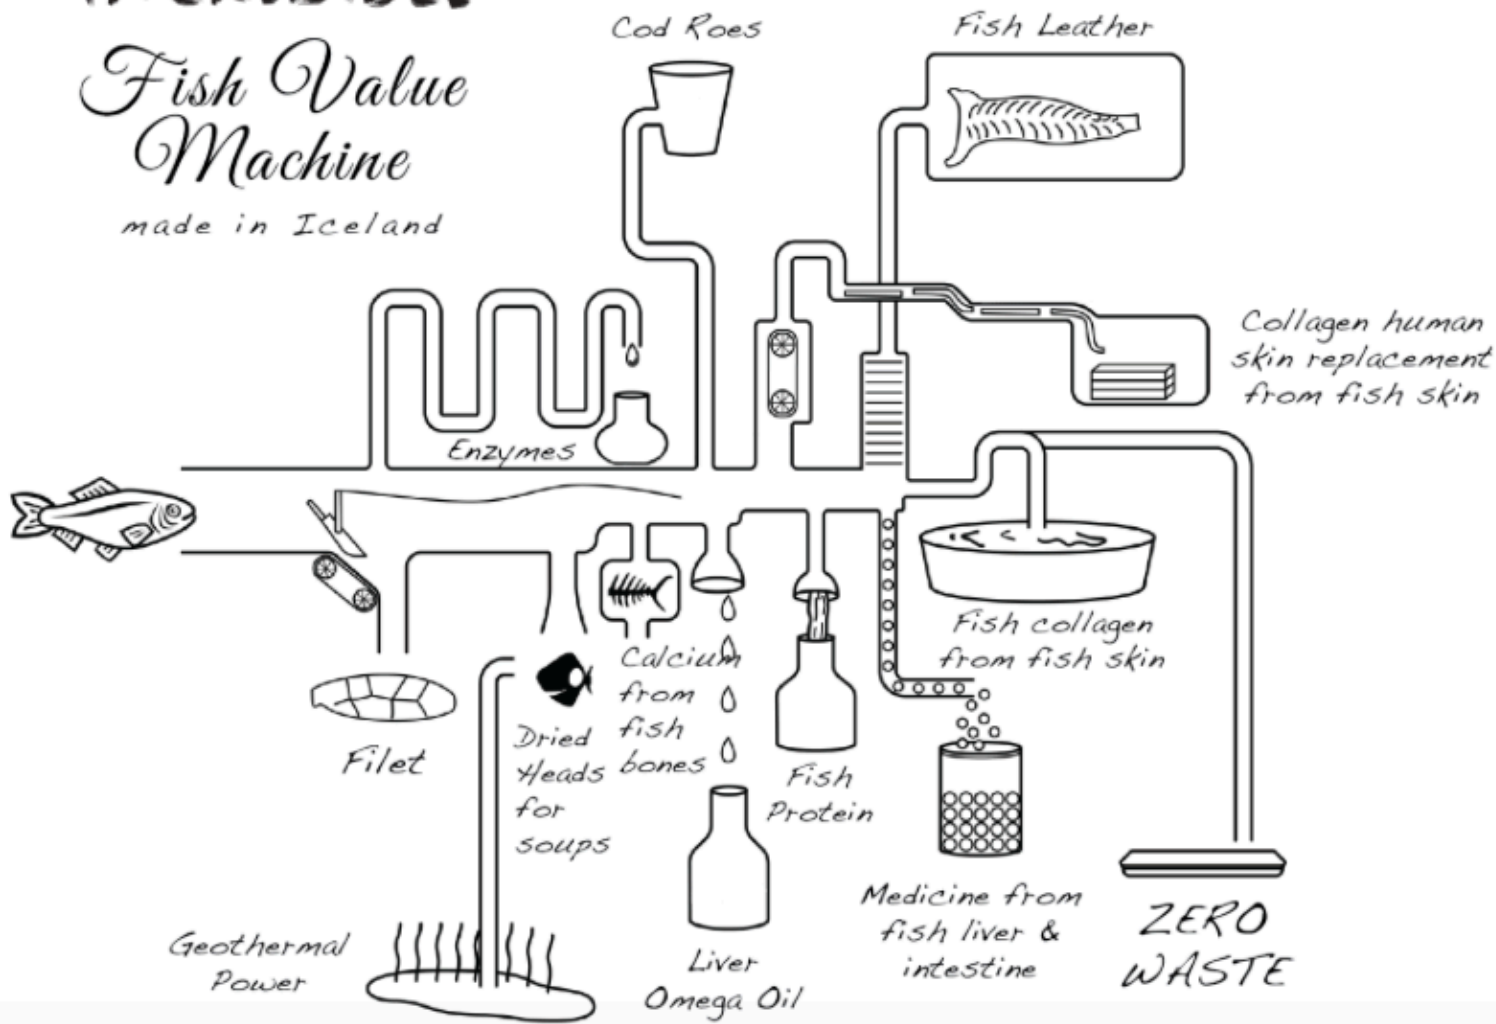 Fish Value
Machine
made in Iceland
Cod Roes
Fish Leather
Collagen human
skin replacement
from fish skin
Enzymes
Fish collagen
from fish skin
Filet
Dried
Heads
for
soups
Calcium
from
fish
bones
Fish
Protein
Medicine from
fish liver &
intestine
ZERO
WASTE
Geothermal
Power
Liver
Omega Oil